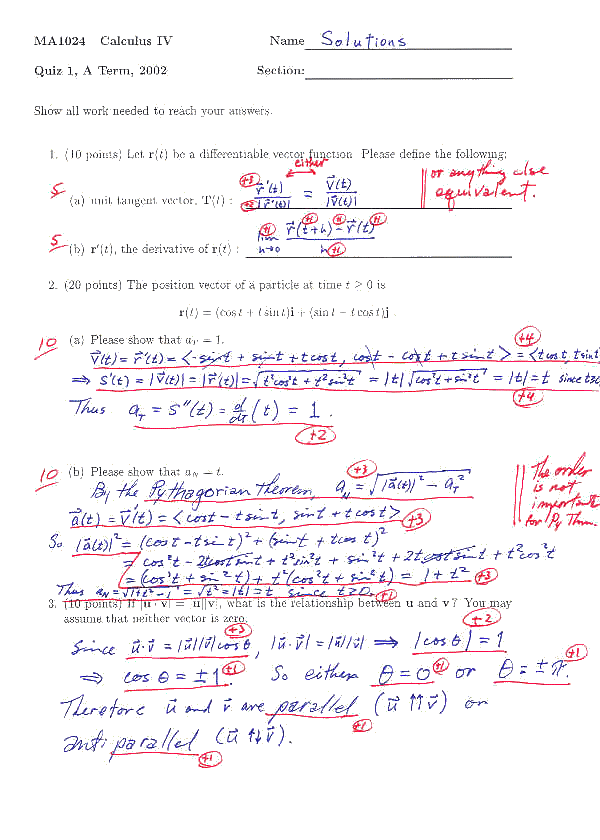 MA1024 Calculus IV Name Solutions
Quiz 1, A Term, 2002 Section:
Show all work needed to reach your answers.
1. (10 points) Let r(t) be a differentiable vector function. Please define the following:
either
5 (a) unit tangent vector, T(t) : +3 r⃗'(t) / +2 |r⃗'(t)| = v⃗(t) / |v⃗(t)| or anything else equivalent.
5 (b) r'(t), the derivative of r(t) : +1 lim h→0 r⃗(t+h) +1 − +1 r⃗(t) +1 / h +1
2. (20 points) The position vector of a particle at time t ≥ 0 is
r(t) = (cos t + t sin t)i + (sin t − t cos t)j .
10 (a) Please show that a_T = 1. +4
v⃗(t) = r⃗'(t) = <-sint + sint + t cost, cost - cost + t sint> = <t cost, t sint
⇒ s'(t) = |v⃗(t)| = |r⃗'(t)| = √(t²cos²t + t²sin²t) = |t| √(cos²t + sin²t) = |t| = t since t≥0
+4
Thus a_T = s''(t) = d/dt (t) = 1 .
+2
10 (b) Please show that a_N = t. +3
By the Pythagorian Theorem, a_N = √(|a⃗(t)|² - a_T²) The order is not important for Py Thm.
a⃗(t) = v⃗'(t) = <cost - t sint, sint + t cost> +3
So |a⃗(t)|² = (cost - t sint)² + (sint + t cost)²
= cos²t - 2tcostsint + t²sin²t + sin²t + 2tcostsint + t²cos²t
= (cos²t + sin²t) + t²(cos²t + sin²t) = 1 + t² +3
Thus a_N = √(1+t²-1) = √t² = |t| = t since t≥0. +1
3. (10 points) If |u · v| = |u||v|, what is the relationship between u and v? You may
assume that neither vector is zero.
+3 +2
Since u⃗·v⃗ = |u⃗||v⃗|cosθ, |u⃗·v⃗| = |u⃗||v⃗| ⇒ |cosθ| = 1
⇒ cosθ = ±1 +1 So either θ = 0 +1 or θ = ±π. +1
Therefore u⃗ and v⃗ are parallel (u⃗ ⇈ v⃗) or
+1
anti parallel (u⃗ ↑↓ v⃗).
+1